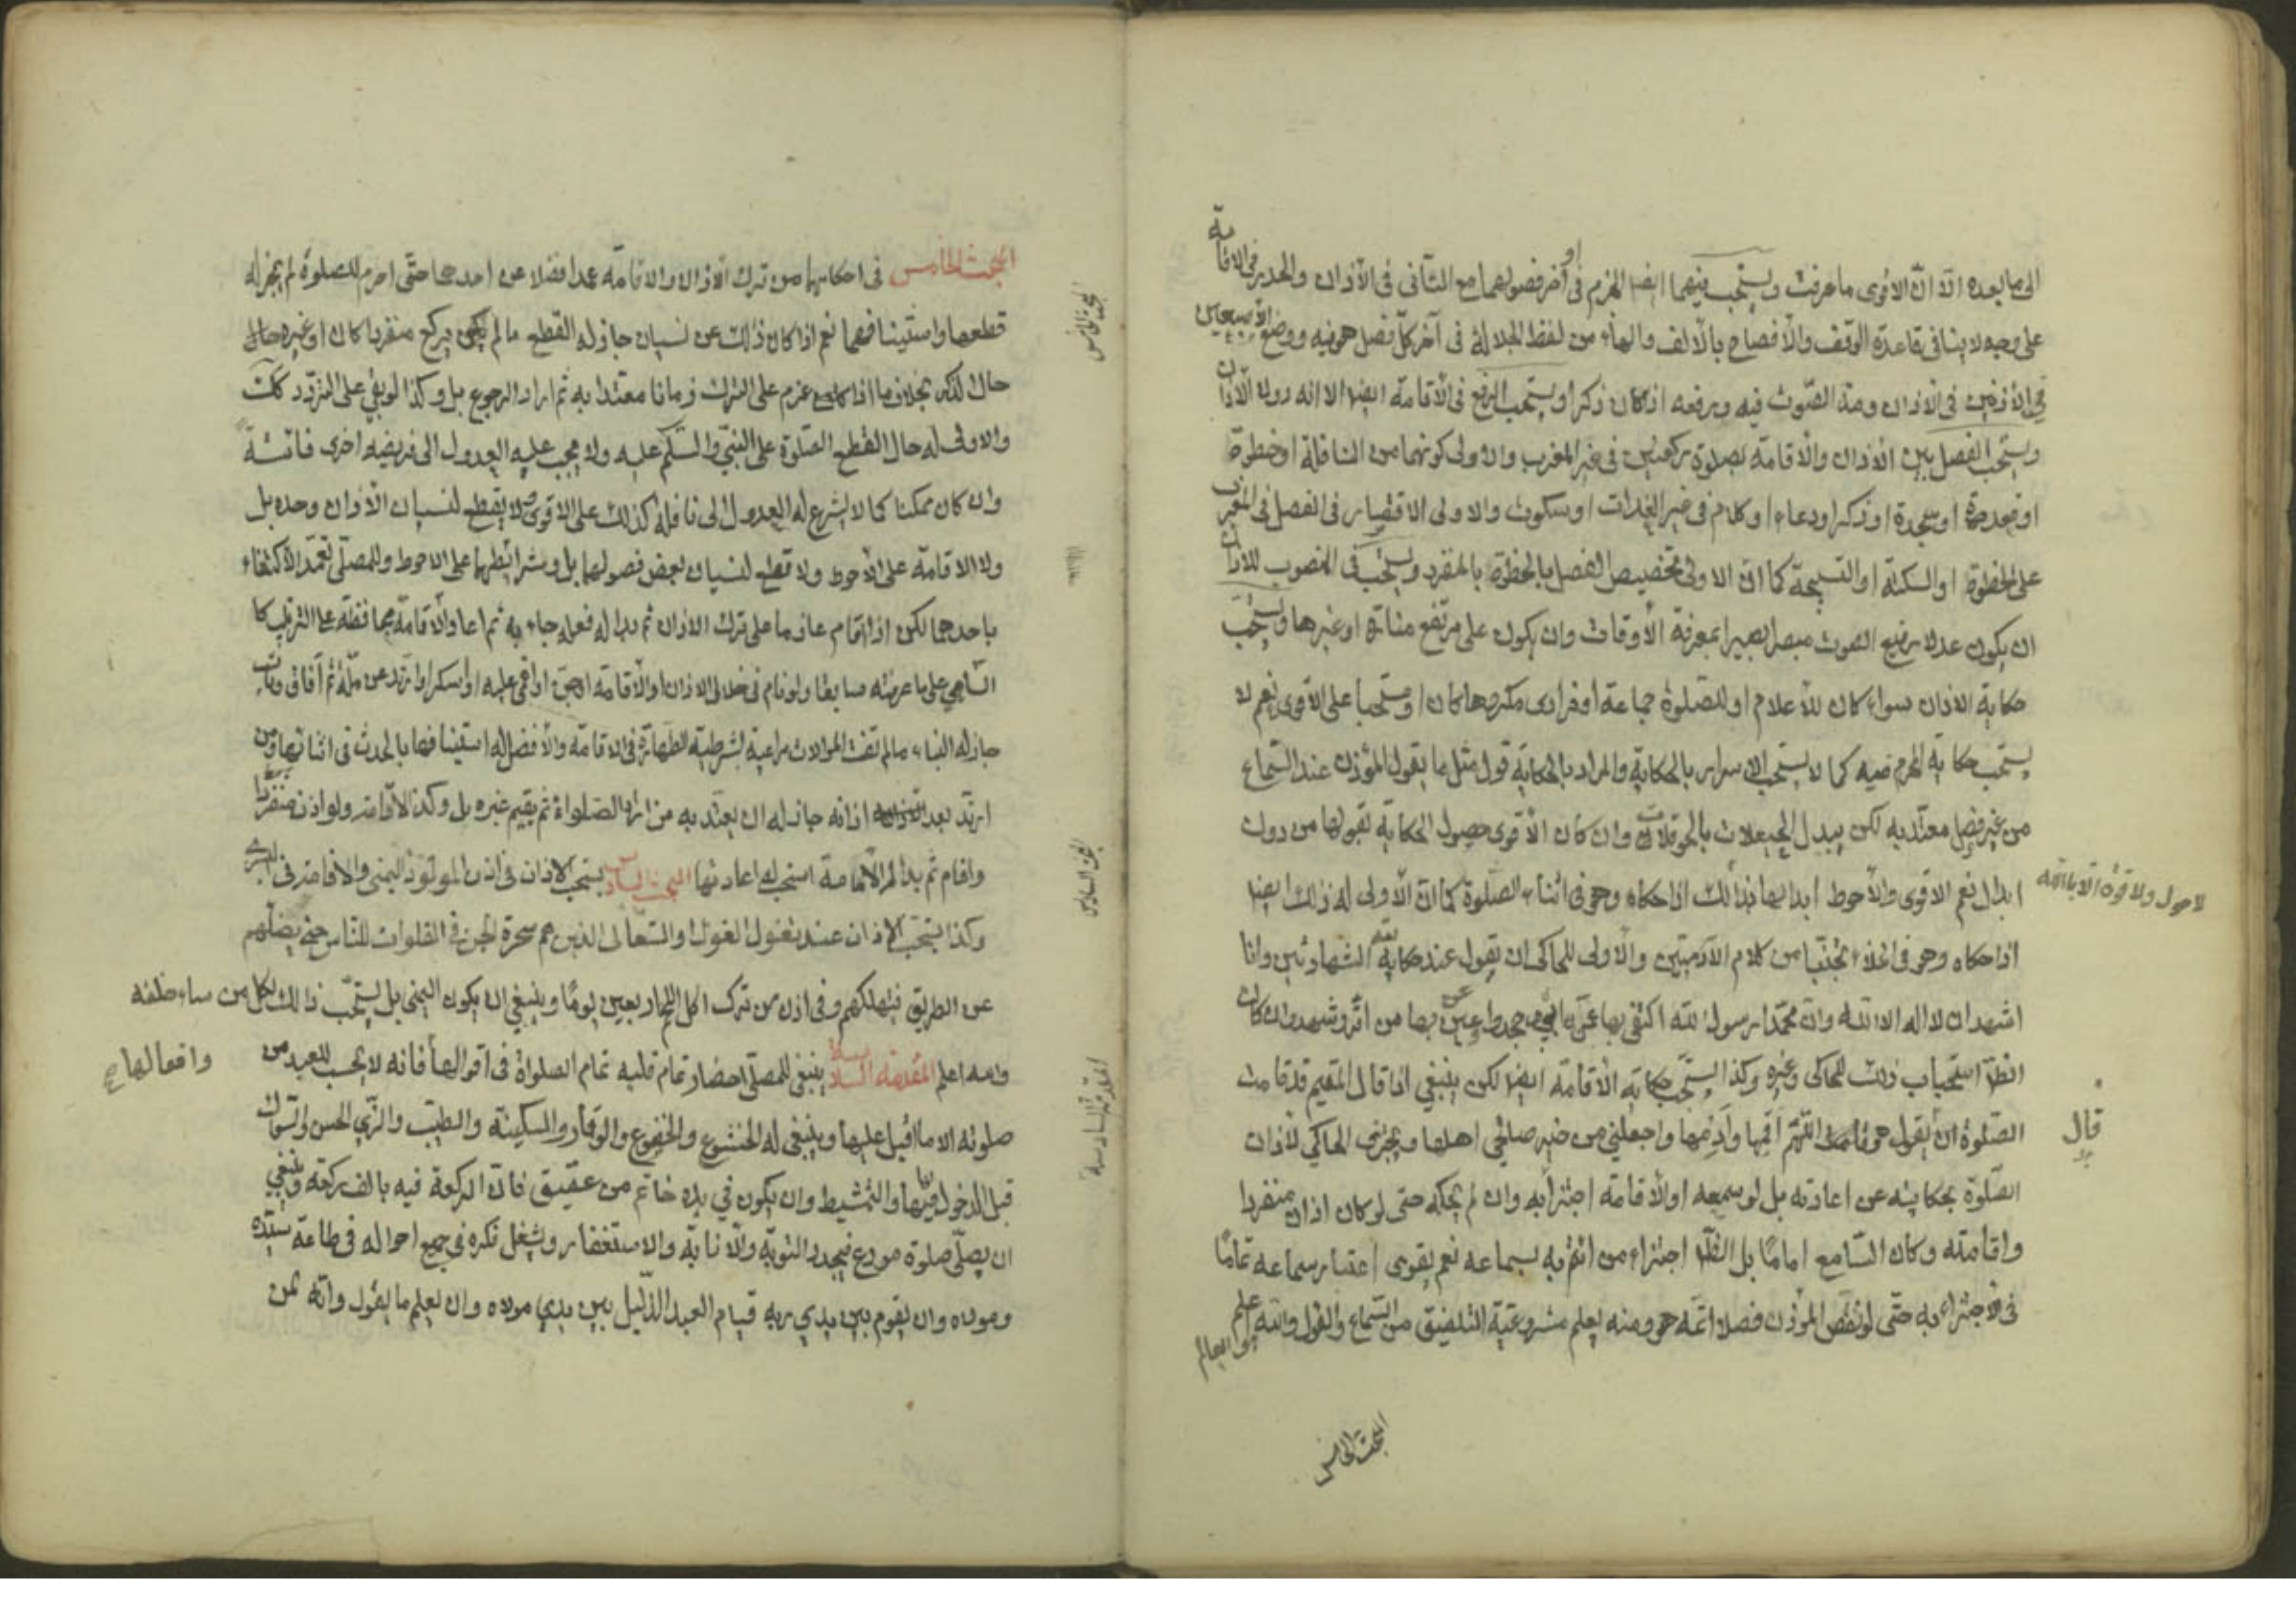 الى ما بعده الا ان الاقوى ما عرفت ويستحب فيهما ايضا الجزم فى أو اخر فصولهما مع التأنى فى الأذان والحدر فى الاقامة
على وجه لا ينافى قاعدة الوقف والأفصاح بالألف والهاء من لفظ الجلالة فى آخر كل فصل هو فيه ووضع الأصبعين
فى الأذنين فى الاذان ومد الصوت فيه ورفعه اذا كان ذكرا ويستحب الرفع فى الأقامة ايضا الا انه دون الأذان
ويستحب الفصل بين الأذان والأقامة بصلوة ركعتين فى غير المغرب والاولى كونهما من النافلة او خطوة
او قعدة او سجدة او ذكر او دعاء او كلام فى غير الغداة او سكوت والاولى الاقتصار فى الفصل فى المغرب
على الخطوة او السكتة او التسبيحة كما ان الاولى تخصيص الفصل بالخطوة بالمنفرد ويستحب فى المنصوب للاذان
ان يكون عدلا رفيع الصوت مبصرا بصيرا بمعرفة الأوقات وان يكون على مرتفع منارة او غيرها ويستحب
حكاية الاذان سواء كان للأعلام او للصلوة جماعة او فرادى مكروها كان او مستحبا على الاقوى نعم لا
يستحب حكاية المحرم منه كما لا يستحب الاسرار بالحكاية والمراد بالحكاية قول مثل ما يقول المؤذن عند السماع
من غير فصل معتد به لكن يبدل الحيعلات بالحوقلات وان كان الأقوى حصول الحكاية بقولها من دون
لا حول ولا قوة الا بالله
ابدال نعم الاقوى والأحوط ابدالها بذلك اذا حكاه وهو فى اثناء الصلوة كما ان الأولى له ذلك ايضا
اذا حكاه وهو فى الخلاء تجنبا من كلام الآدميين والأولى للحاكى ان يقول عند حكاية الشهادتين وانا
اشهد ان لا اله الا الله وان محمدا رسول الله اكتفى بها عمن ابى وجحد واعين بها من اقر وشهد وان كان
الظاهر استحباب ذلك للحاكى وغيره وكذا يستحب حكاية الأقامة ايضا لكن ينبغى اذا قال المقيم قد قامت
قال
الصلوة ان يقول هو اللهم اقمها وأدمها واجعلنى من خير صالحى اهلها ويجزى الحاكى لأذان
الصلوة بحكايته عن اعادته بل لو سمعه او الأقامة اجتزأ به وان لم يحكه حتى لو كان اذان منفردا
واقامته وكان السامع اماما بل الظاهر اجتزاء من ائتم به بسماعه نعم يقوى اعتبار سماعه تماما
فى الاجتزاء به حتى لو نقص المؤذن فصلا اتمه هو ومنه يعلم مشروعية التلفيق من السماع والقول والله
هو العالم
المبحث الخامس
المبحث الخامس فى احكامها من ترك الأذان والاقامة عمدا فضلا عن احدهما حتى احرم للصلوة لم يجز له
قطعها واستينافهما نعم اذا كان ذلك عن نسيان جاز له القطع ما لم يركع منفردا كان او غيره حال
حال الذكر بخلاف ما اذا عزم على الترك زمانا معتدا به ثم اراد الرجوع بل وكذا لو بقى على التردد كذلك
والاولى له حال القطع الصلوة على النبى والسلام عليه ولا يجب عليه العدول الى فريضه اخرى فائتة
وان كان ممكنا كما لا يشرع له العدول الى نافلة كذلك على الاقوى ولا يقطع لنسيان الأذان وحده بل
ولا الاقامة على الأحوط ولا قطع لنسيان بعض فصولها بل وشرائطها على الاحوط وللمصلى تعمد الأكتفاء
باحدهما لكن اذا اقام عازما على ترك الاذان ثم بدا له فعله جاء به ثم اعاد الأقامة محافظة على الترتيب كا
الناسى على ما عرفته سابقا ولو نام فى خلال الاذان او الأقامة او جن او اغمى عليه او سكر او ارتد عن ملة ثم افاق وتاب
جاز له البناء ما لم تفت الموالات مراعية لشرطية الطهارة فى الاقامة والأفضل له استينافها بالحدث فى اثنائها ومن
ارتد بعد اذانه جاز له ان يعتد به من اراد الصلواة ثم يقيم غيره بل وكذا الاقامة ولو اذن منفردا
واقام ثم بدا له الأمامة استحب له اعادتها المبحث السادس يستحب الاذان فى اذن المولود اليمنى والاقامة فى اليسرى
وكذا يستحب الاذان عند تغول الغول او السعالى الذين هم سحرة الجن فى الفلوات للناس حتى يضلهم
عن الطريق فيهلكهم وفى اذن من ترك اكل اللحم اربعين يوما وينبغى ان يكون اليمنى بل يستحب ذلك لكل من ساء خلقه
والله اعلم المقدمة السادسة ينبغى للمصلى احضار تمام قلبه تمام الصلواة فى اقوالها فانه لا يحسب للعبد من
وافعالها صح
صلوته الا ما اقبل عليها وينبغى له الخشوع والخضوع والوقار والسكينة والطيب والزى الحسن والسواك
قبل الدخول فيها والتمشيط وان يكون فى يده خاتم من عقيق فان الركعة فيه بالف ركعة وينبغى
ان يصلى صلوة مودع فيجدد التوبة والأنابة والاستغفار ويشغل فكره فى جميع احواله فى طاعة سيده
ومولاه وان يقوم بين يدى ربه قيام العبد الذليل بين يدى مولاه وان يعلم ما يقول وانه لمن
المبحث الخامس
المبحث السادس
المقدمة السادسة